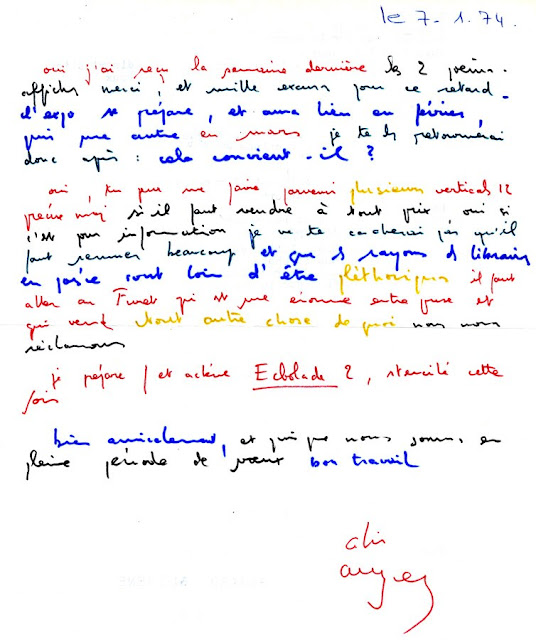 le 7-1.74.
oui j'ai reçu la semaine dernière les 2 poèmes-
affiches merci, et mille excuses pour ce retard-
l'expo se prépare, et aura lieu en février,
puis une autre en mars je te les retournerai
donc après : cela convient-il ?
oui, tu peux me faire parvenir plusieurs verticales 12
s'il faut vendre à tout prix oui si
c'est pour information je ne te cacherai pas qu'il
faut ramer beaucoup et que les rayons de librairies
en poésie sont loin d'être pléthoriques il faut
aller au Furet qui est une énorme entreprise et
qui vend tout autre chose de quoi nous nous
réclamons
je prépare / et achève Ecbolade 2, stencilé cette
fois
bien amicalement, et puisque nous sommes en
pleine période de vœux bon travail